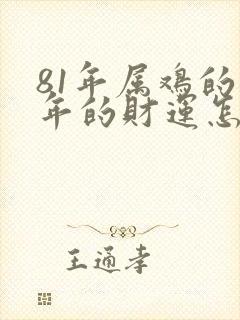 81年属鸡的
年的财运怎
王通孝